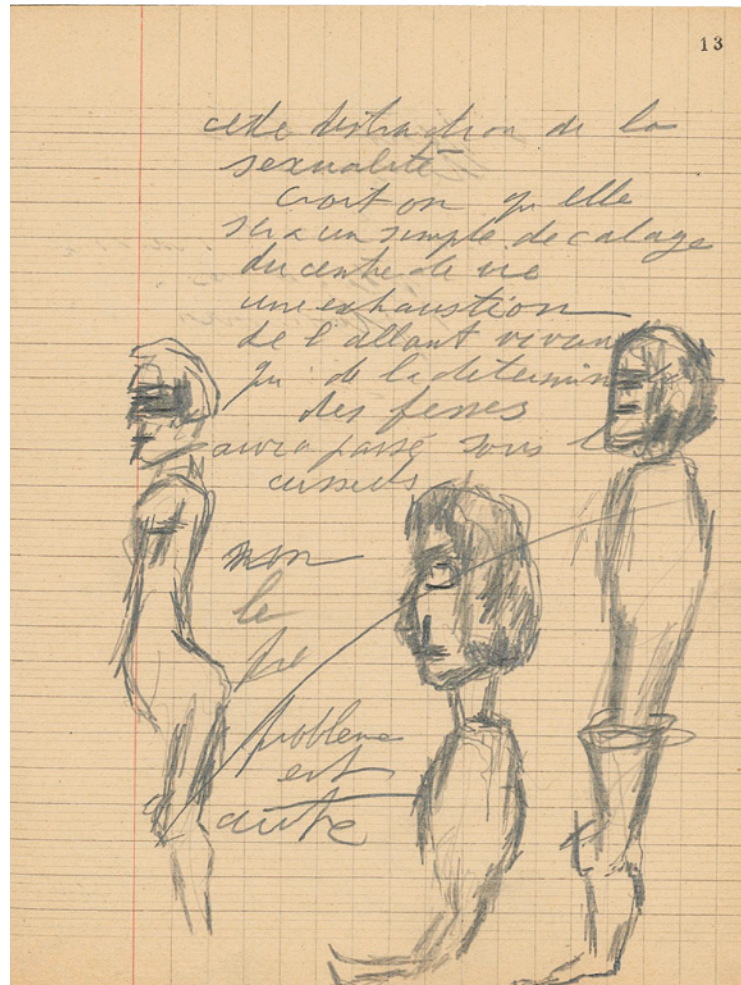 13
cette distraction de la
sexualité
croit on qu elle
sera un simple decalage
du centre de vie
une exhaustion
de l'allant vivant
qui de la determin
des fesses
aura passé sous l
cuisses
non
le
pro
probleme
est
autre